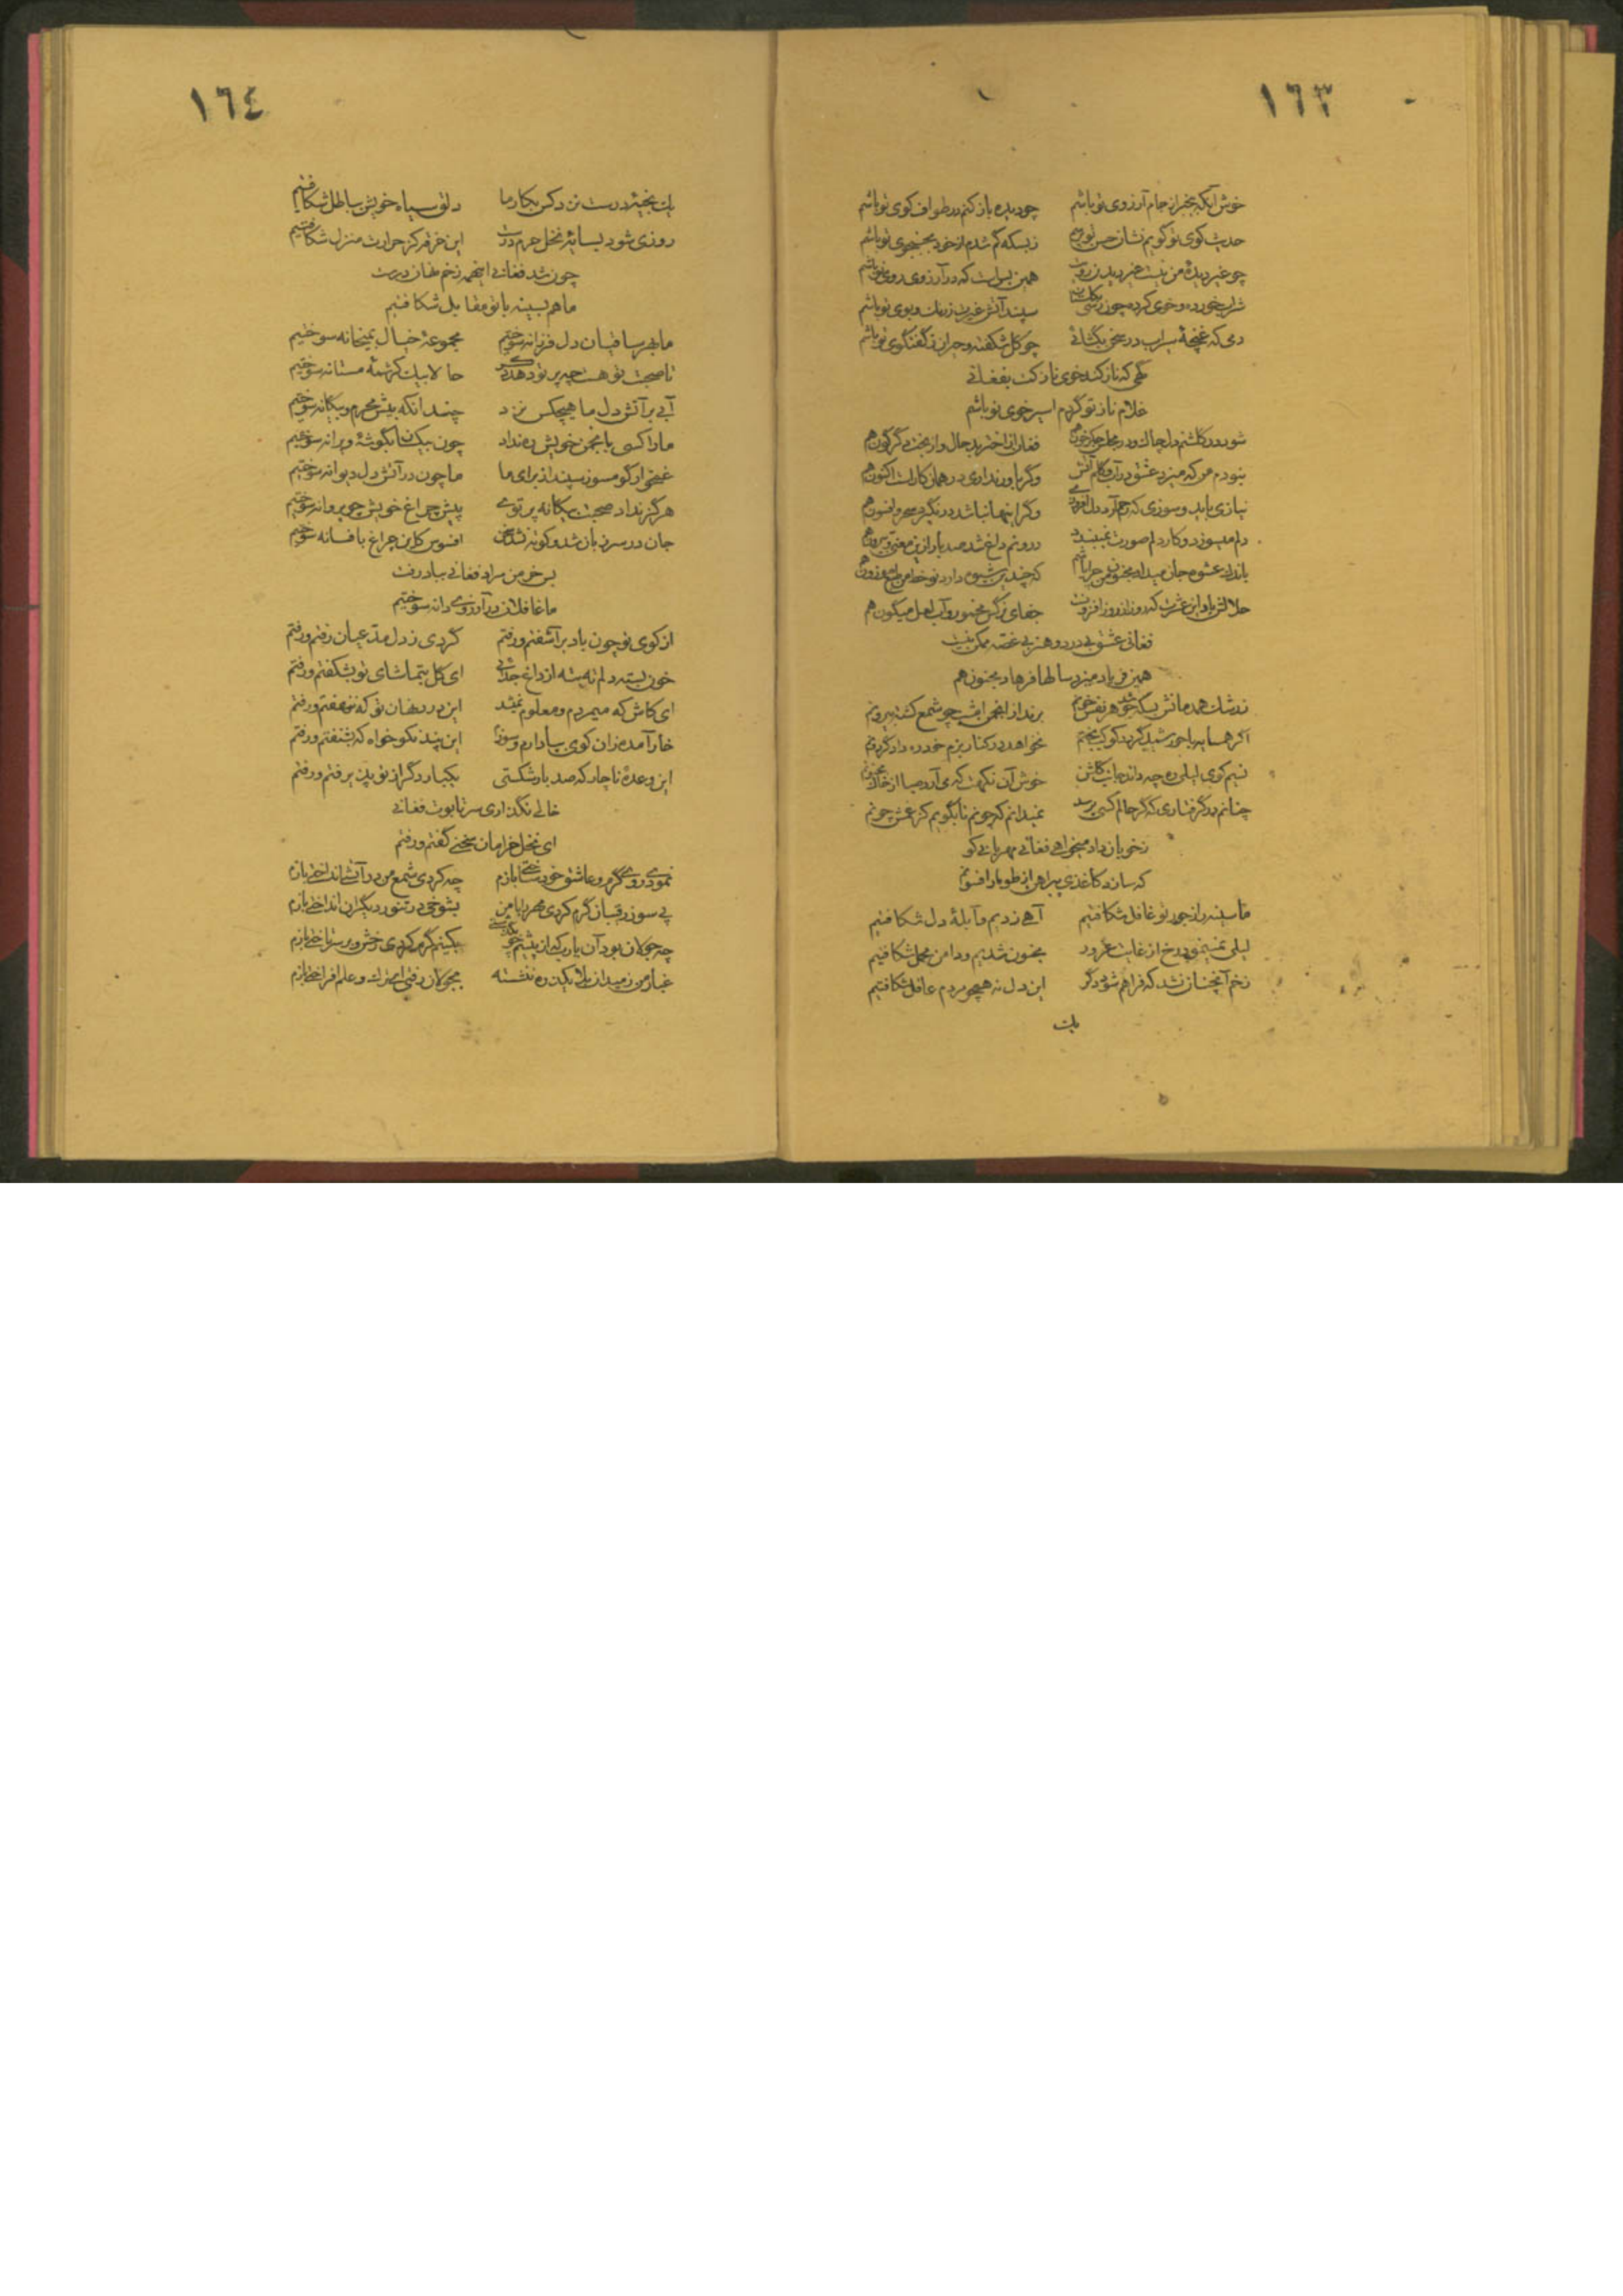 ١٦٣
خوش آنکه بیخبر از جام آرزوی تو باشم چو دیده باز کنم در طواف کوی تو باشم
حدیث کوی تو گویم نشان حسن تو پرسم ز بسکه گم شدم از خود بجستجوی تو باشم
چو غیر دیدهٔ من نیست همین بس است که در آرزوی روی تو باشم
شراب خورده و خوی کرده چون رسی سپند آتش غیرت ز رنگ و بوی تو باشم
دمی که غنچهٔ سیراب در سخن بگشائی چو گل شکفته و حیران ز گفتگوی تو باشم
گهی که ناز کند خوی نازکت بفغانی
غلام ناز تو گردم اسیر خوی تو باشم
شود در گلشنم دل چاک و در محفل جگر خون هم فغان از اختر بد حال و از بخت دگرگون هم
نبودم من که میزد عشق در آب و گلم آتش وگر باور نداری در همان کار است اکنون هم
نیازی باید و سوزی که رحم آرد وگر اینها نباشد در نگیرد سحر و افسون هم
دلم میسوزد و کار دلم صورت نمیبندد درونم داغ شد صد بار ازین معنی و بیرون هم
باندک عشوه جان میداد مجنون که چندین شیوه دارد نو خط من طبع موزون هم
حلالش باد این عشرت که روز از روز افزونست جفای نرگس مخمور و آب لعل میگون هم
فغانی عشق بی درد و هنر بی غصه ممکن نیست
همین فریاد میزد سالها فرهاد و مجنون هم
ز رشک همدمانش بسکه جوشد هر نفس خونم برند از انجمن هر شب چو شمع کشته بیرونم
اگر همسایه با خورشید گردد کوکب بختم نخواهد در کنار بزم خود ره داد گردونم
نسیم کوی لیلی ره چه داند جانب گلشن خوش آن نکهت که می آرد صبا از خاک مجنونم
چنانم در گرفتاری که گر حالم کسی پرسد نمیدانم که چونم تا بگویم کز غمش چونم
ز خوبان داد میخواهی فغانی مهربانی کو
که سازد کاغذی پیراهن از طومار افسونم
ما سینه را ز جور تو غافل شکافتیم آهی زدیم و آبلهٔ دل شکافتیم
لیلی نمینمود رخ از غایت غرور مجنون شدیم و دامن محمل شکافتیم
زخم آنچنان نشد که فراهم شود دگر این دل نه همچو مردم عاقل شکافتیم
یک
١٦٤
یک بخیهٔ درست نزد کس بکار ما دلق سیاه خویش بباطل شکافتیم
روزی شود بسایهٔ نخل حرم درست این خرقه کز حرارت منزل شکافتیم
چون شد فغانی اینهمه زخم نهان درست
ما هم بسینه با تو مقابل شکافتیم
ما بهر ساقیان دل فرزانه سوختیم مجموعهٔ خیال بمیخانه سوختیم
تا صحبت تو هست چه پرتو دهد حالا بیک کرشمهٔ مستانه سوختیم
آبی بر آتش دل ما هیچکس نزد چندانکه پیش محرم و بیگانه سوختیم
ما را کسی بانجمن خویش ره نداد چون بیکسان بگوشهٔ ویرانه سوختیم
غمخوار گو مسوز سپند از برای ما ما چون در آتش دل دیوانه سوختیم
هرگز نداد صحبت بیگانه پرتوی پیش چراغ خویش چو پروانه سوختیم
جان در سر زبان شد و کوته نشد سخن افسوس کاین چراغ بافسانه سوختیم
بس خرمن مراد فغانی بباد رفت
ما غافلان در آرزوی دانه سوختیم
از کوی تو چون باد برآشفتم و رفتم گردی ز دل مدعیان رفتم و رفتم
خون بسته دلم ته بته از داغ جدائی ای گل بتماشای تو بشکفتم و رفتم
ای کاش که میمردم و معلوم نمیشد این درد نهان تو که ننهفتم و رفتم
خار آمده زان کوی این پند نکوخواه که نشنفتم و رفتم
این وعدهٔ ناچار که صد بار شکستی یکبار دگر از تو پذیرفتم و رفتم
خالی نگذاری سر تابوت فغانی
ای نخل خرامان سخنی گفتم و رفتم
نمودی روی گرم و عاشق خود ساختی بازم چه کردی شمع من در آتشی انداختی بازم
پی سوز رقیبان گرم کردی بشوخی در تنور دیگران انداختی بازم
چه جولان بود آن یارب که از پیشم بکین گرم کردی رخش و بر سر تاختی بازم
غبار من ز میدان بلا یکذره ننشسته بجولان رفتی ای ترک و علم افراختی بازم